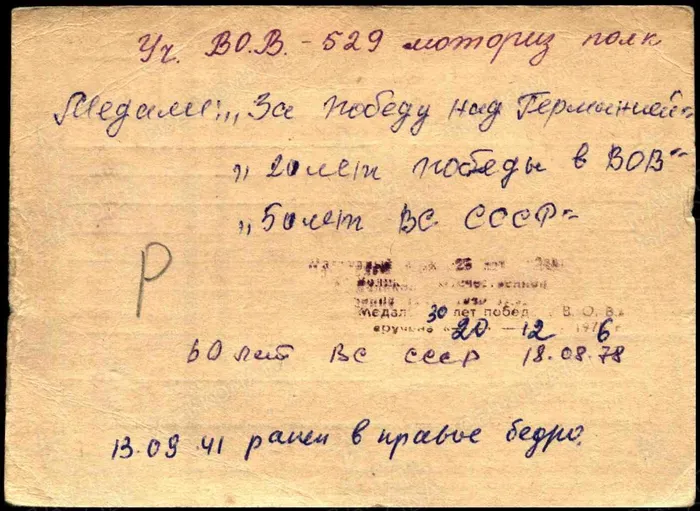 Уч. ВО.В. - 529 моториз полк
Медали: „За победу над Германией"
„20 лет победы в ВОВ"
„50 лет ВС СССР"
Р
25 лет
Великой Отечественной
Медаль 30 лет побед В. О. В.
вручена 20 - 12 1976 г
60 лет ВС СССР 18.08.78
13.09.41 ранен в правое бедро.